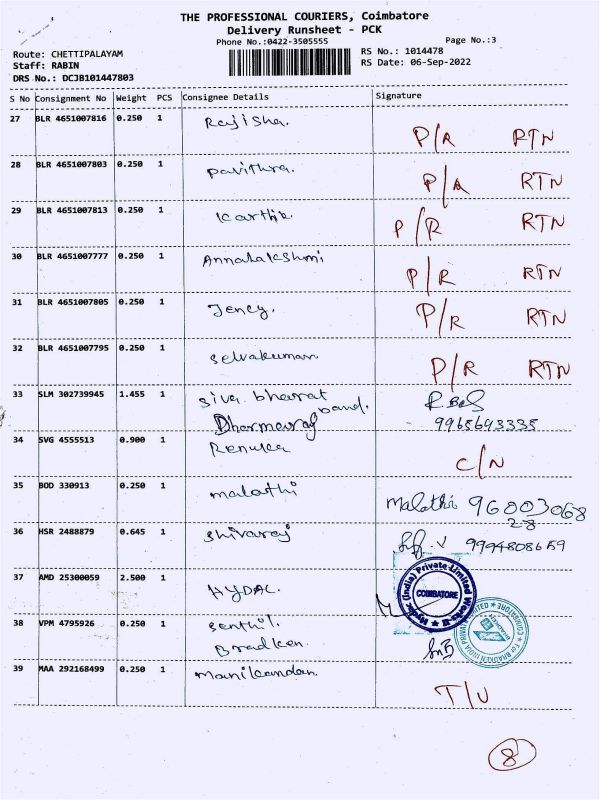 THE PROFESSIONAL COURIERS, Coimbatore
Delivery Runsheet - PCK
Phone No.:0422-3505555 Page No.:3
Route: CHETTIPALAYAM RS No.: 1014478
Staff: RABIN RS Date: 06-Sep-2022
DRS No.: DCJB101447803
S No Consignment No Weight PCS Consignee Details Signature
27 BLR 4651007816 0.250 1 Rajisha. P/A RTN
28 BLR 4651007803 0.250 1 pavithra. P/A RTN
29 BLR 4651007813 0.250 1 Karthik P/R RTN
30 BLR 4651007777 0.250 1 Annalakshmi P/R RTN
31 BLR 4651007805 0.250 1 Jency. P/R RTN
32 BLR 4651007795 0.250 1 selvakumar. P/R RTN
33 SLM 302739945 1.455 1 siva bharat band.
Dharmaraj 9965693335
34 SVG 4555513 0.900 1 Renuka C/N
35 BOD 330913 0.250 1 malathi Malathi 96003068
28
36 HSR 2488879 0.645 1 shivaraj 9994808659
37 AMD 25300059 2.500 1 HYDAC. COIMBATORE
38 VPM 4795926 0.250 1 senthil.
Bradken.
39 MAA 292168499 0.250 1 manikandan. T/U
8